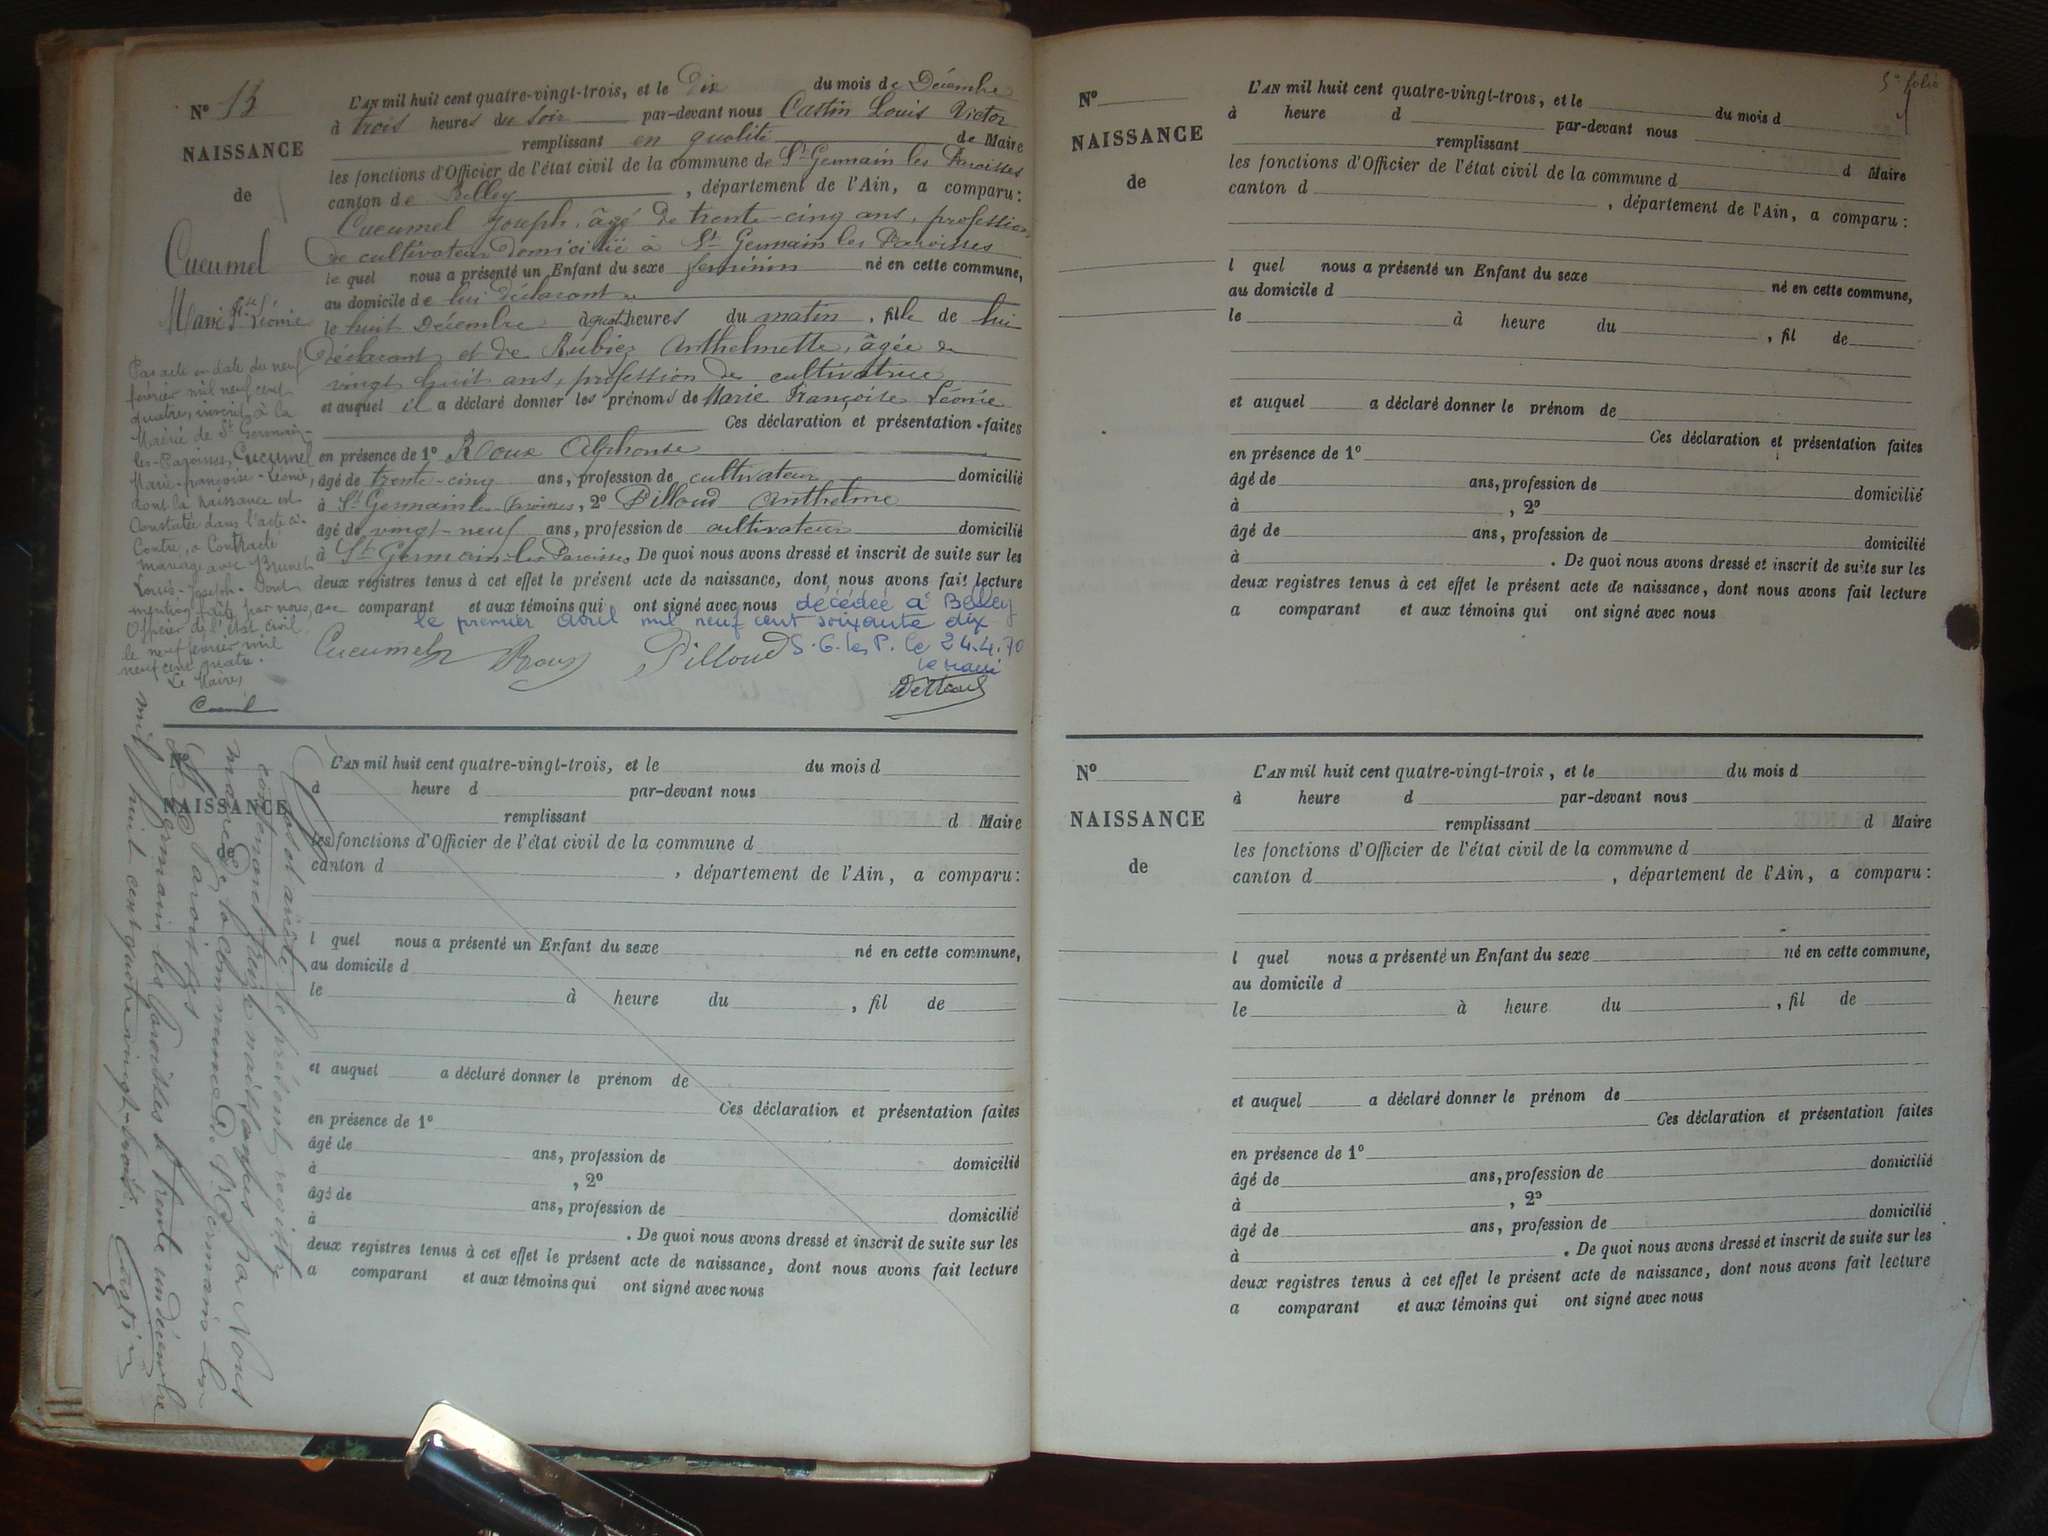 N° 13
NAISSANCE
de
Cucumel
Marie Fse Léonie
L'AN mil huit cent quatre-vingt-trois, et le Dix du mois de Décembre
à trois heures du soir par-devant nous Castin Louis Victor
remplissant en qualité de Maire
les fonctions d'Officier de l'état civil de la commune de St Germain les Paroisses
canton de Belley, département de l'Ain, a comparu:
Cucumel Joseph, âgé de trente-cinq ans, profession
de cultivateur domicilié à St Germain les Paroisses
le quel nous a présenté un Enfant du sexe feminin né en cette commune,
au domicile de lui déclarant
le huit Décembre à heures du matin, fille de lui
déclarant et de Rubier Anthelmette, âgée de
vingt huit ans, profession de cultivatrice
et auquel il a déclaré donner les prénoms de Marie Françoise Léonie
Ces déclaration et présentation faites
en présence de 1° Roux Alphonse
âgé de trente-cinq ans, profession de cultivateur domicilié
à St Germain les Paroisses, 2° Pilloud Anthelme
âgé de vingt-neuf ans, profession de cultivateur domicilié
à St Germain les Paroisses. De quoi nous avons dressé et inscrit de suite sur les
deux registres tenus à cet effet le présent acte de naissance, dont nous avons fait lecture
au comparant et aux témoins qui ont signé avec nous décédée à Belley
le premier avril mil neuf cent soixante dix
S.G. les P. le 24.4.70
le maire
Cucumel Roux Pilloud
Par acte en date du neuf
février mil neuf cent
quatre, inscrit à la
Mairie de St Germain-
les-Paroisses, Cucumel
Marie-françoise-Léonie,
dont la naissance est
constatée dans l'acte ci-
contre, a contracté
mariage avec Brunet
Louis-Joseph. Dont
mention faite par nous,
Officier de l'état civil
le neuf février mil
neuf cent quatre.
Le Maire,
N°
NAISSANCE
de
L'AN mil huit cent quatre-vingt-trois, et le du mois d
à heure d par-devant nous
remplissant d Maire
les fonctions d'Officier de l'état civil de la commune d
canton d , département de l'Ain, a comparu:
l quel nous a présenté un Enfant du sexe né en cette commune,
au domicile d
le à heure du , fil de
et auquel a déclaré donner le prénom de
Ces déclaration et présentation faites
en présence de 1°
âgé de ans, profession de domicilié
à , 2°
âgé de ans, profession de domicilié
à . De quoi nous avons dressé et inscrit de suite sur les
deux registres tenus à cet effet le présent acte de naissance, dont nous avons fait lecture
a comparant et aux témoins qui ont signé avec nous
Clos et arrêté le présent registre
contenant treize naissances par Nous
maire de la commune de St Germain les
Paroisses
St Germain les Paroisses le trente un décembre
mil huit cent quatre vingt-trois. Castin
5e folio
N°
NAISSANCE
de
L'AN mil huit cent quatre-vingt-trois, et le du mois d
à heure d par-devant nous
remplissant d Maire
les fonctions d'Officier de l'état civil de la commune d
canton d , département de l'Ain, a comparu:
l quel nous a présenté un Enfant du sexe né en cette commune,
au domicile d
le à heure du , fil de
et auquel a déclaré donner le prénom de
Ces déclaration et présentation faites
en présence de 1°
âgé de ans, profession de domicilié
à , 2°
âgé de ans, profession de domicilié
à . De quoi nous avons dressé et inscrit de suite sur les
deux registres tenus à cet effet le présent acte de naissance, dont nous avons fait lecture
a comparant et aux témoins qui ont signé avec nous
N°
NAISSANCE
de
L'AN mil huit cent quatre-vingt-trois, et le du mois d
à heure d par-devant nous
remplissant d Maire
les fonctions d'Officier de l'état civil de la commune d
canton d , département de l'Ain, a comparu:
l quel nous a présenté un Enfant du sexe né en cette commune,
au domicile d
le à heure du , fil de
et auquel a déclaré donner le prénom de
Ces déclaration et présentation faites
en présence de 1°
âgé de ans, profession de domicilié
à , 2°
âgé de ans, profession de domicilié
à . De quoi nous avons dressé et inscrit de suite sur les
deux registres tenus à cet effet le présent acte de naissance, dont nous avons fait lecture
a comparant et aux témoins qui ont signé avec nous